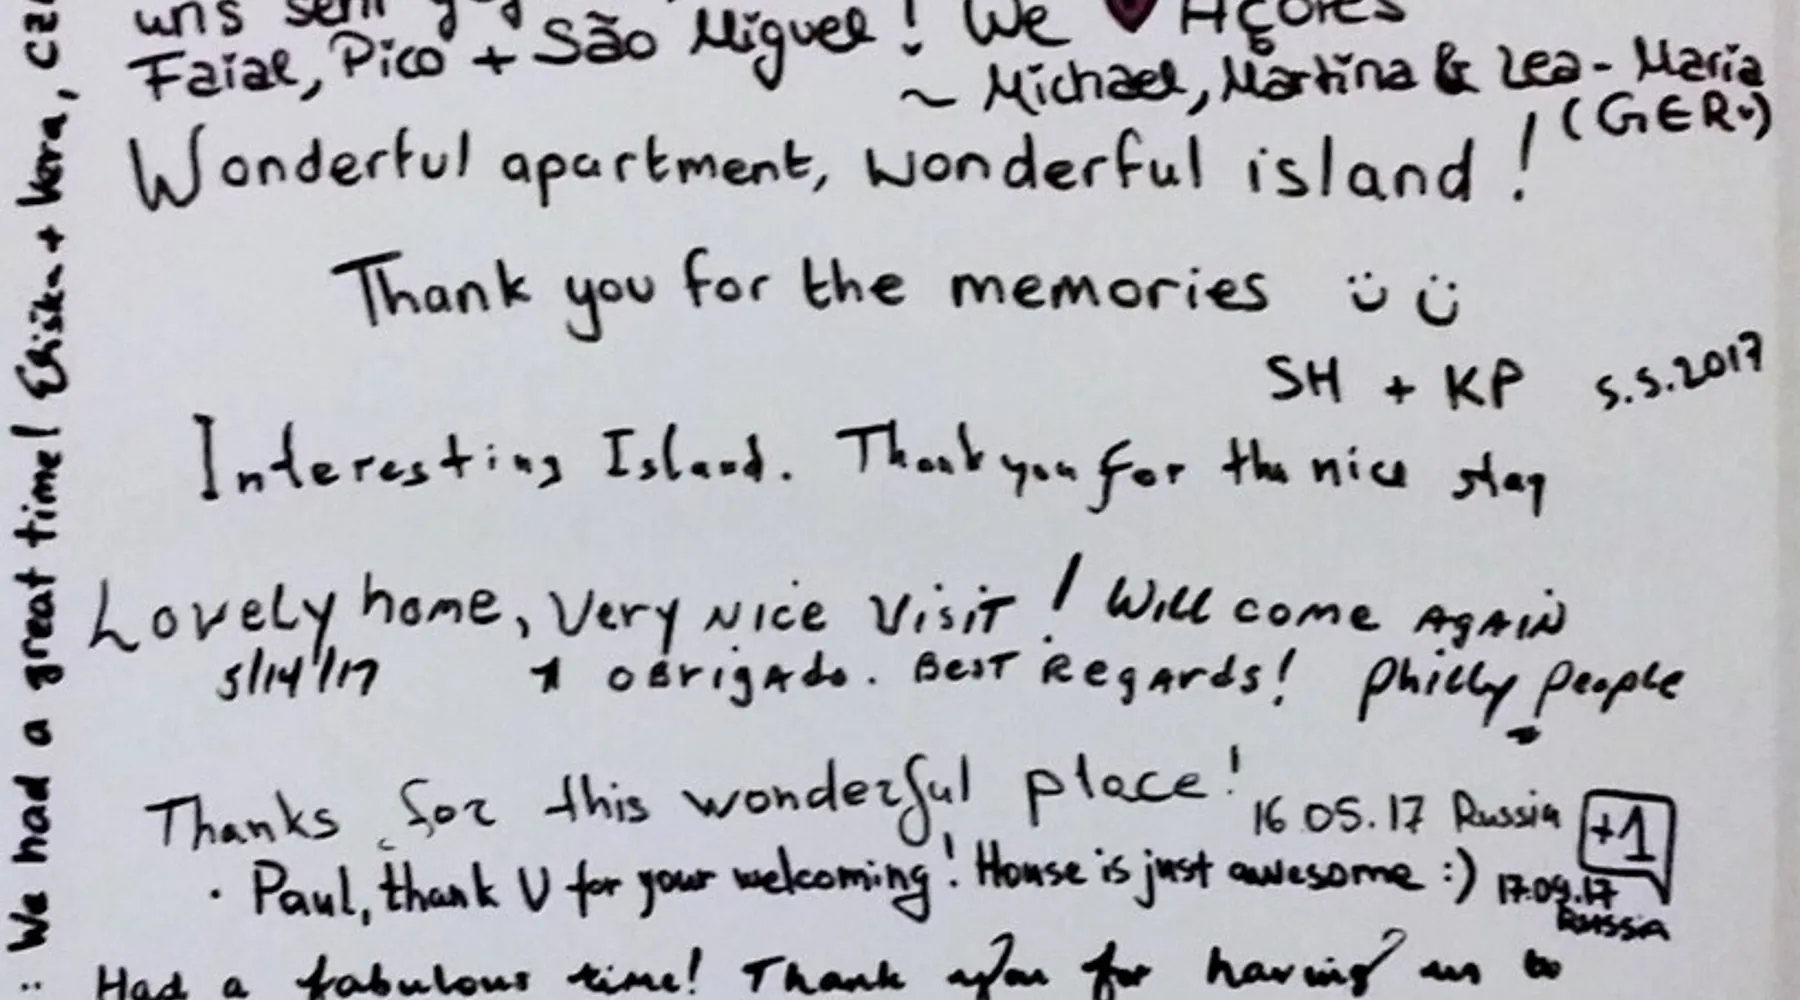 uns sehr
Faial, Pico + São Miguel! We ♥ Açores
~ Michael, Martina & Lea-Maria
(GER)
Wonderful apartment, wonderful island!
Thank you for the memories
SH + KP 5.5.2017
Interesting Island. Thank you for the nice stay
Lovely home, Very Nice Visit! Will come AgAiN
5/14/17 OBrigAdo. BesT RegArds! Philly People
Thanks for this wonderful place! 16.05.17 Russia +1
· Paul, thank U for your welcoming! House is just awesome :) 17.09.17
Russia
Had a fabulous time! Thank you for having us to
We had a great time! Eliska + Vera,